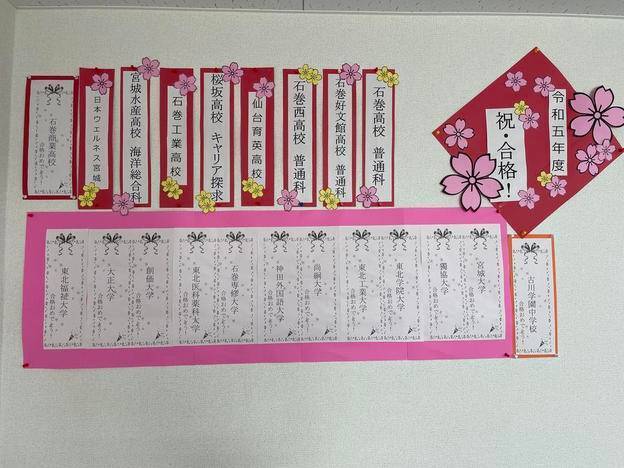 令和五年度
祝・合格!
石巻高校 普通科
石巻好文館高校 普通科
石巻西高校 普通科
仙台育英高校
桜坂高校 キャリア探求
石巻工業高校
宮城水産高校 海洋総合科
日本ウエルネス宮城
石巻商業高校
合格おめでとう!
古川学園中学校
合格おめでとう!
宮城大学
合格おめでとう!
獨協大学
合格おめでとう!
東北学院大学
合格おめでとう!
東北工業大学
合格おめでとう!
尚絅大学
合格おめでとう!
神田外国語大学
合格おめでとう!
石巻専修大学
合格おめでとう!
東北医科薬科大学
合格おめでとう!
創価大学
合格おめでとう!
大正大学
合格おめでとう!
東北福祉大学
合格おめでとう!